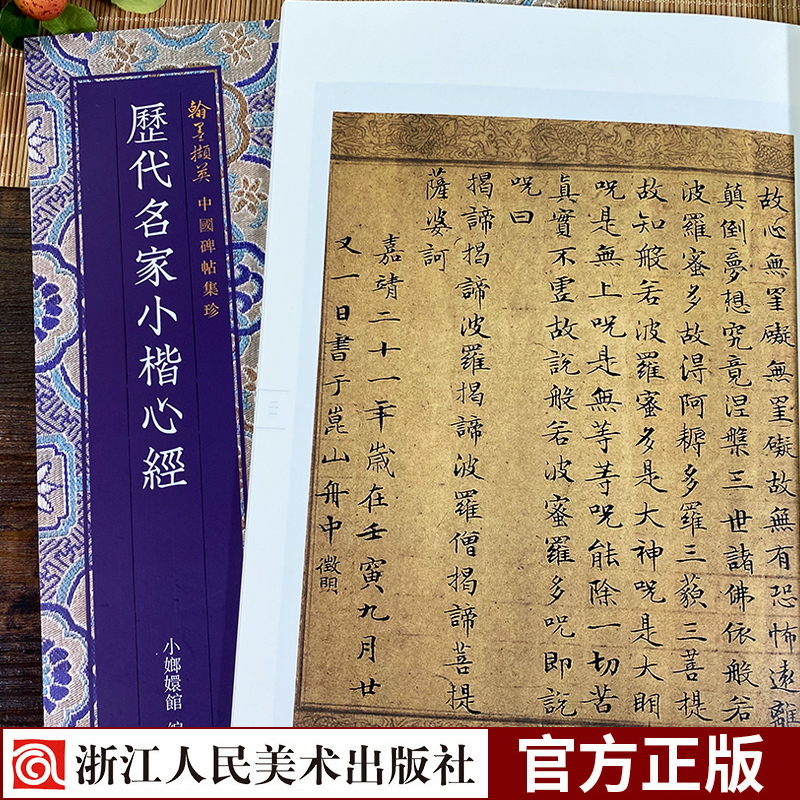 翰墨擷英 中國碑帖集珍
歷代名家小楷心經
小嫏嬛館
故心無罣礙無罣礙故無有恐怖遠離
顛倒夢想究竟涅槃三世諸佛依般若
波羅蜜多故得阿耨多羅三藐三菩提
故知般若波羅蜜多是大神呪是大明
呪是無上呪是無等等呪能除一切苦
真實不虛故說般若波蜜羅多呪即說
呪曰
揭諦揭諦波羅揭諦波羅僧揭諦菩提
薩婆訶
嘉靖二十一年歲在壬寅九月廿
又一日書于崑山舟中徵明
浙江人民美术出版社
官方正版